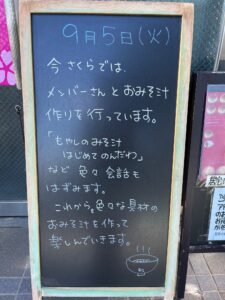 9月5日(火)
今さくらでは、
メンバーさんとおみそ汁
作りを行っています。
「もやしのみそ汁
はじめてのんだわ」
など色々会話も
はずみます。
これから色々な具材の
おみそ汁を作って
楽しんでいきます。